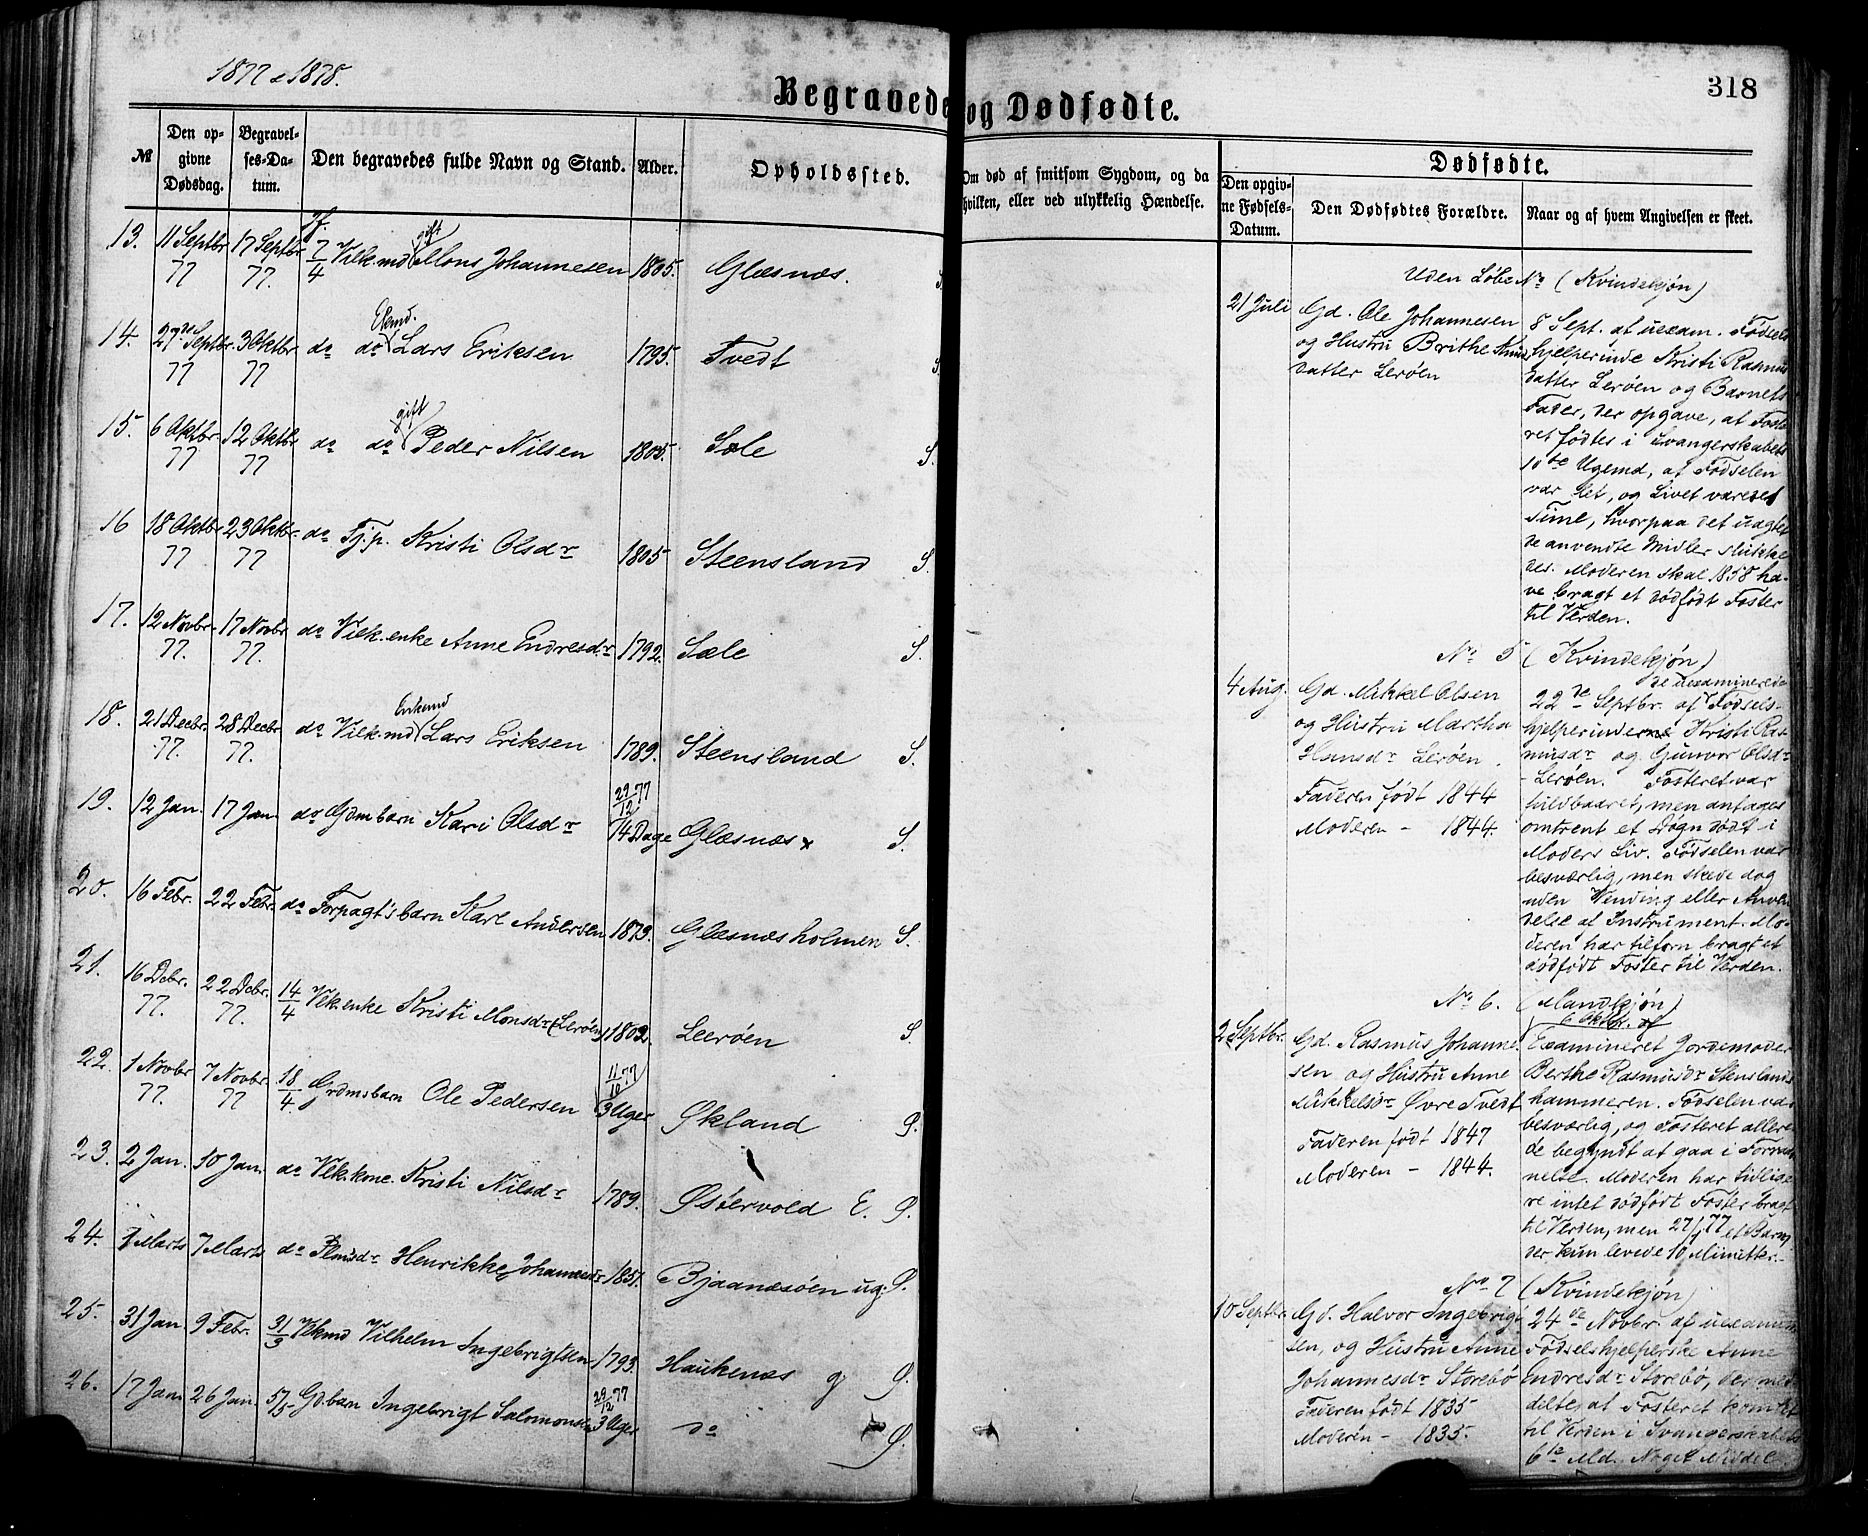 1877 & 1878.
318
Begravede og Dødfødte.
№
Den op-
givne
Dødsdag.
Begravel-
ses-Da-
tum.
Den begravedes fulde Navn og Stand.
Alder.
Opholdssted.
Om død af smitsom Sygdom, og da
hvilken, eller ved ulykkelig Hændelse.
Dødfødte.
Den opgiv-
ne Fødsels-
Datum.
Den Dødfødtes Forældre.
Naar og af hvem Angivelsen er skeet.
13. 11 Septbr 77 17 Septbr 77. 7/4 Vilk.md gift Mons Johannesen 1805. Glæsnæs. S.
14. 27de Septbr. 77 3 Oktbr. 77 do do Lars Eriksen 1795. Tvedt S.
15. 6 Oktbr. 77 12 Oktbr 77 do do gift Peder Nilsen 1805. Sæle S.
16 18 Oktbr 77 23 Oktbr. 77 do Tj.p. Kristi Olsdr 1805 Steensland S.
17. 12 Novbr. 77. 17 Novbr 77. do Vilk.enke Anne Endresdr 1792. Sæle S.
18. 21 Decbr. 77. 28 Decbr 77. do Vilk.md Enkemd Lars Eriksen 1789. Steensland S.
19. 12 Jan. 17 Jan. do Gdmbarn Kari Olsdr 29/12 77 14 Dage Glæsnæs x S.
20. 16 Febr. 22 Febr. do Forpagt's barn Karl Andersen 1873. Glæsnæsholmen S.
21. 16 Decbr. 77. 22 Decbr. 77. 14/4 Vilk.enke Kristi Monsdr (Lerøen) 1802. Leerøen S.
22. 1 Novbr 77. 7 Novbr. 77 18/4. Grdmsbarn Ole Pedersen 11/10 77 3 Uger Økland Ø.
23. 2 Jan. 10 Jan. do Vilk.kone. Kristi Nilsdr 1789. Østervold E. Ø.
24. 1 Marts 7 Marts do Plmsdr Henrikke Johannesdr 1857. Bjaanæsøen ug. Ø.
25. 31 Jan 9 Febr. 31/3 Vilkmd Vilhelm Ingebrigtsen 1793. Haukenæs g Ø.
26. 17 Jan 26 Jan. 5/5 Gdbarn Ingebrigt Salomons 29/12 77 3 Uger do Ø.
Uden Løbe No (Kvindekjøn)
21 Juli
Gd. Ole Johannesen
og Hustru Brithe Knuds
datter Lerøen
8 Sept. af uexam. Fødsels
hjelperinde Kristi Rasmus
datter Lerøen og Barnets
Fader, der opgave, at Foste
ret fødtes i Svangerskabets
10de Ugemd, at Fødselen
var let, og Livet varede 1
Time, hvorpaa det uagtet
de anvendte Midler slukke
des. Moderen skal 1858 ha-
ve bragt et dødfødt Foster
til Verden.
No 5 (Kvindekjøn)
4 Aug.
Gd. Mikkel Olsen
og Hustru Martha
Hansdr Lerøen.
Faderen født 1844
Moderen - 1844.
de uexaminerede
22de Septbr. af Fødsels-
hjelperinderne Kristi Ras
musdr og Gunvor Olsdr
- Lerøen. Fosteret var
fuldbaaret, men antages
omtrent et Døgn dødt i
Moders Liv. Fødselen var
besværlig, men skede dog
uden Vending eller Anven
delse af Instrument. Mo-
deren har tilforn bragt et
dødfødt Foster til Verden.
No 6. (Mandkjøn)
2 Septbr.
Gd. Rasmus Johanne-
sen og Hustru Anne
Mikkelsdr Øvre Tvedt
Faderen født 1847
Moderen - 1844.
6 Oktbr. af
Examineret Jordemoder
Berthe Rasmusdr Stensland
hammeren. Fødselen var
besværlig, og Fosteret allere
de begyndt at gaa i Forraad
nelse. Moderen har tidlige
re intet dødfødt Foster bragt
til Verden, men 27/1 77 et Barn
der kun levede 10 Minutter.
No 7 (Kvindekjøn)
10 Septbr.
Gd. Halvor Ingebrigt
sen, og Hustru Anne
Johannesdr Storebø
Faderen født 1835
Moderen - 1835.
24de Novbr. af uexamin
Fødselshjelperske Anne
Endresdr Storebø, der med
delte, at Fosteret kom
til Verden i Svangerskabets
6te Md. Noget Middel